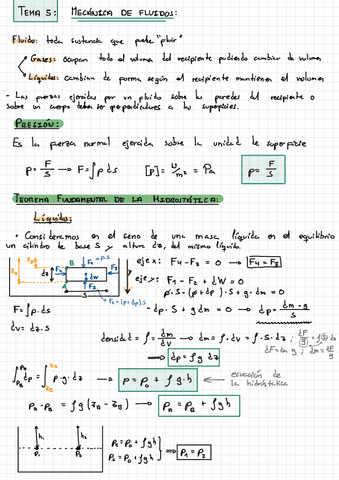 TEMA 5: MECÁNICA DE FLUIDOS:
Fluido: toda sustancia que puede "fluir"
Gases: ocupan todo el volumen del recipiente pudiendo cambiar de volumen
Líquidos: cambian de forma según el recipiente mantienen el volumen
- Las fuerzas ejercidas por un fluido sobre las paredes del recipiente o
sobre un cuerpo deben ser perpendiculares a las superficies.
PRESIÓN:
Es la fuerza normal ejercida sobre la unidad de superficie
p = F/S → F = ∫ p ds [p] = N/m² = Pa p = F/S
TEOREMA FUNDAMENTAL DE LA HIDROSTÁTICA:
Líquidos:
• Consideramos en el seno de una masa líquida en el equilibrio
un cilindro de base S y altura dz, del mismo líquido.
eje x: F4 - F3 = 0 → F4 = F3
eje y: F1 - F2 + dW = 0
p·S - (p+dp)·S + g·dm = 0
F = ∫ p·ds
- dp·S + g dm = 0 → dp = dm·g/S
dv = dz·S
densidad = ρ = dm/dv → dm = ρ·dv = ρ·S·dz
→ dp = ρ g dz
p = p₀ + ρ g·h ← ecuación de la hidrostática
→ p_A = p_B + ρgh
h₁ h₂
P₁ P₂
P₁ = P₀ + ρgh
P₂ = P₀ + ρgh
→ P₁ = P₂